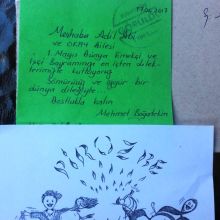 19.04.2013
GÖRÜLDÜ
Merhaba Adil Abi
ve OFAY Ailesi
1 Mayıs Dünya Emekçi ve
İşçi Bayramınızı en içten dilek-
lerimizle kutluyoruz
Sömürüsüz ve özgür bir
dünya dileğiyle...
Dostlukla kalın
Mehmet Boğatekin
PIROZBE